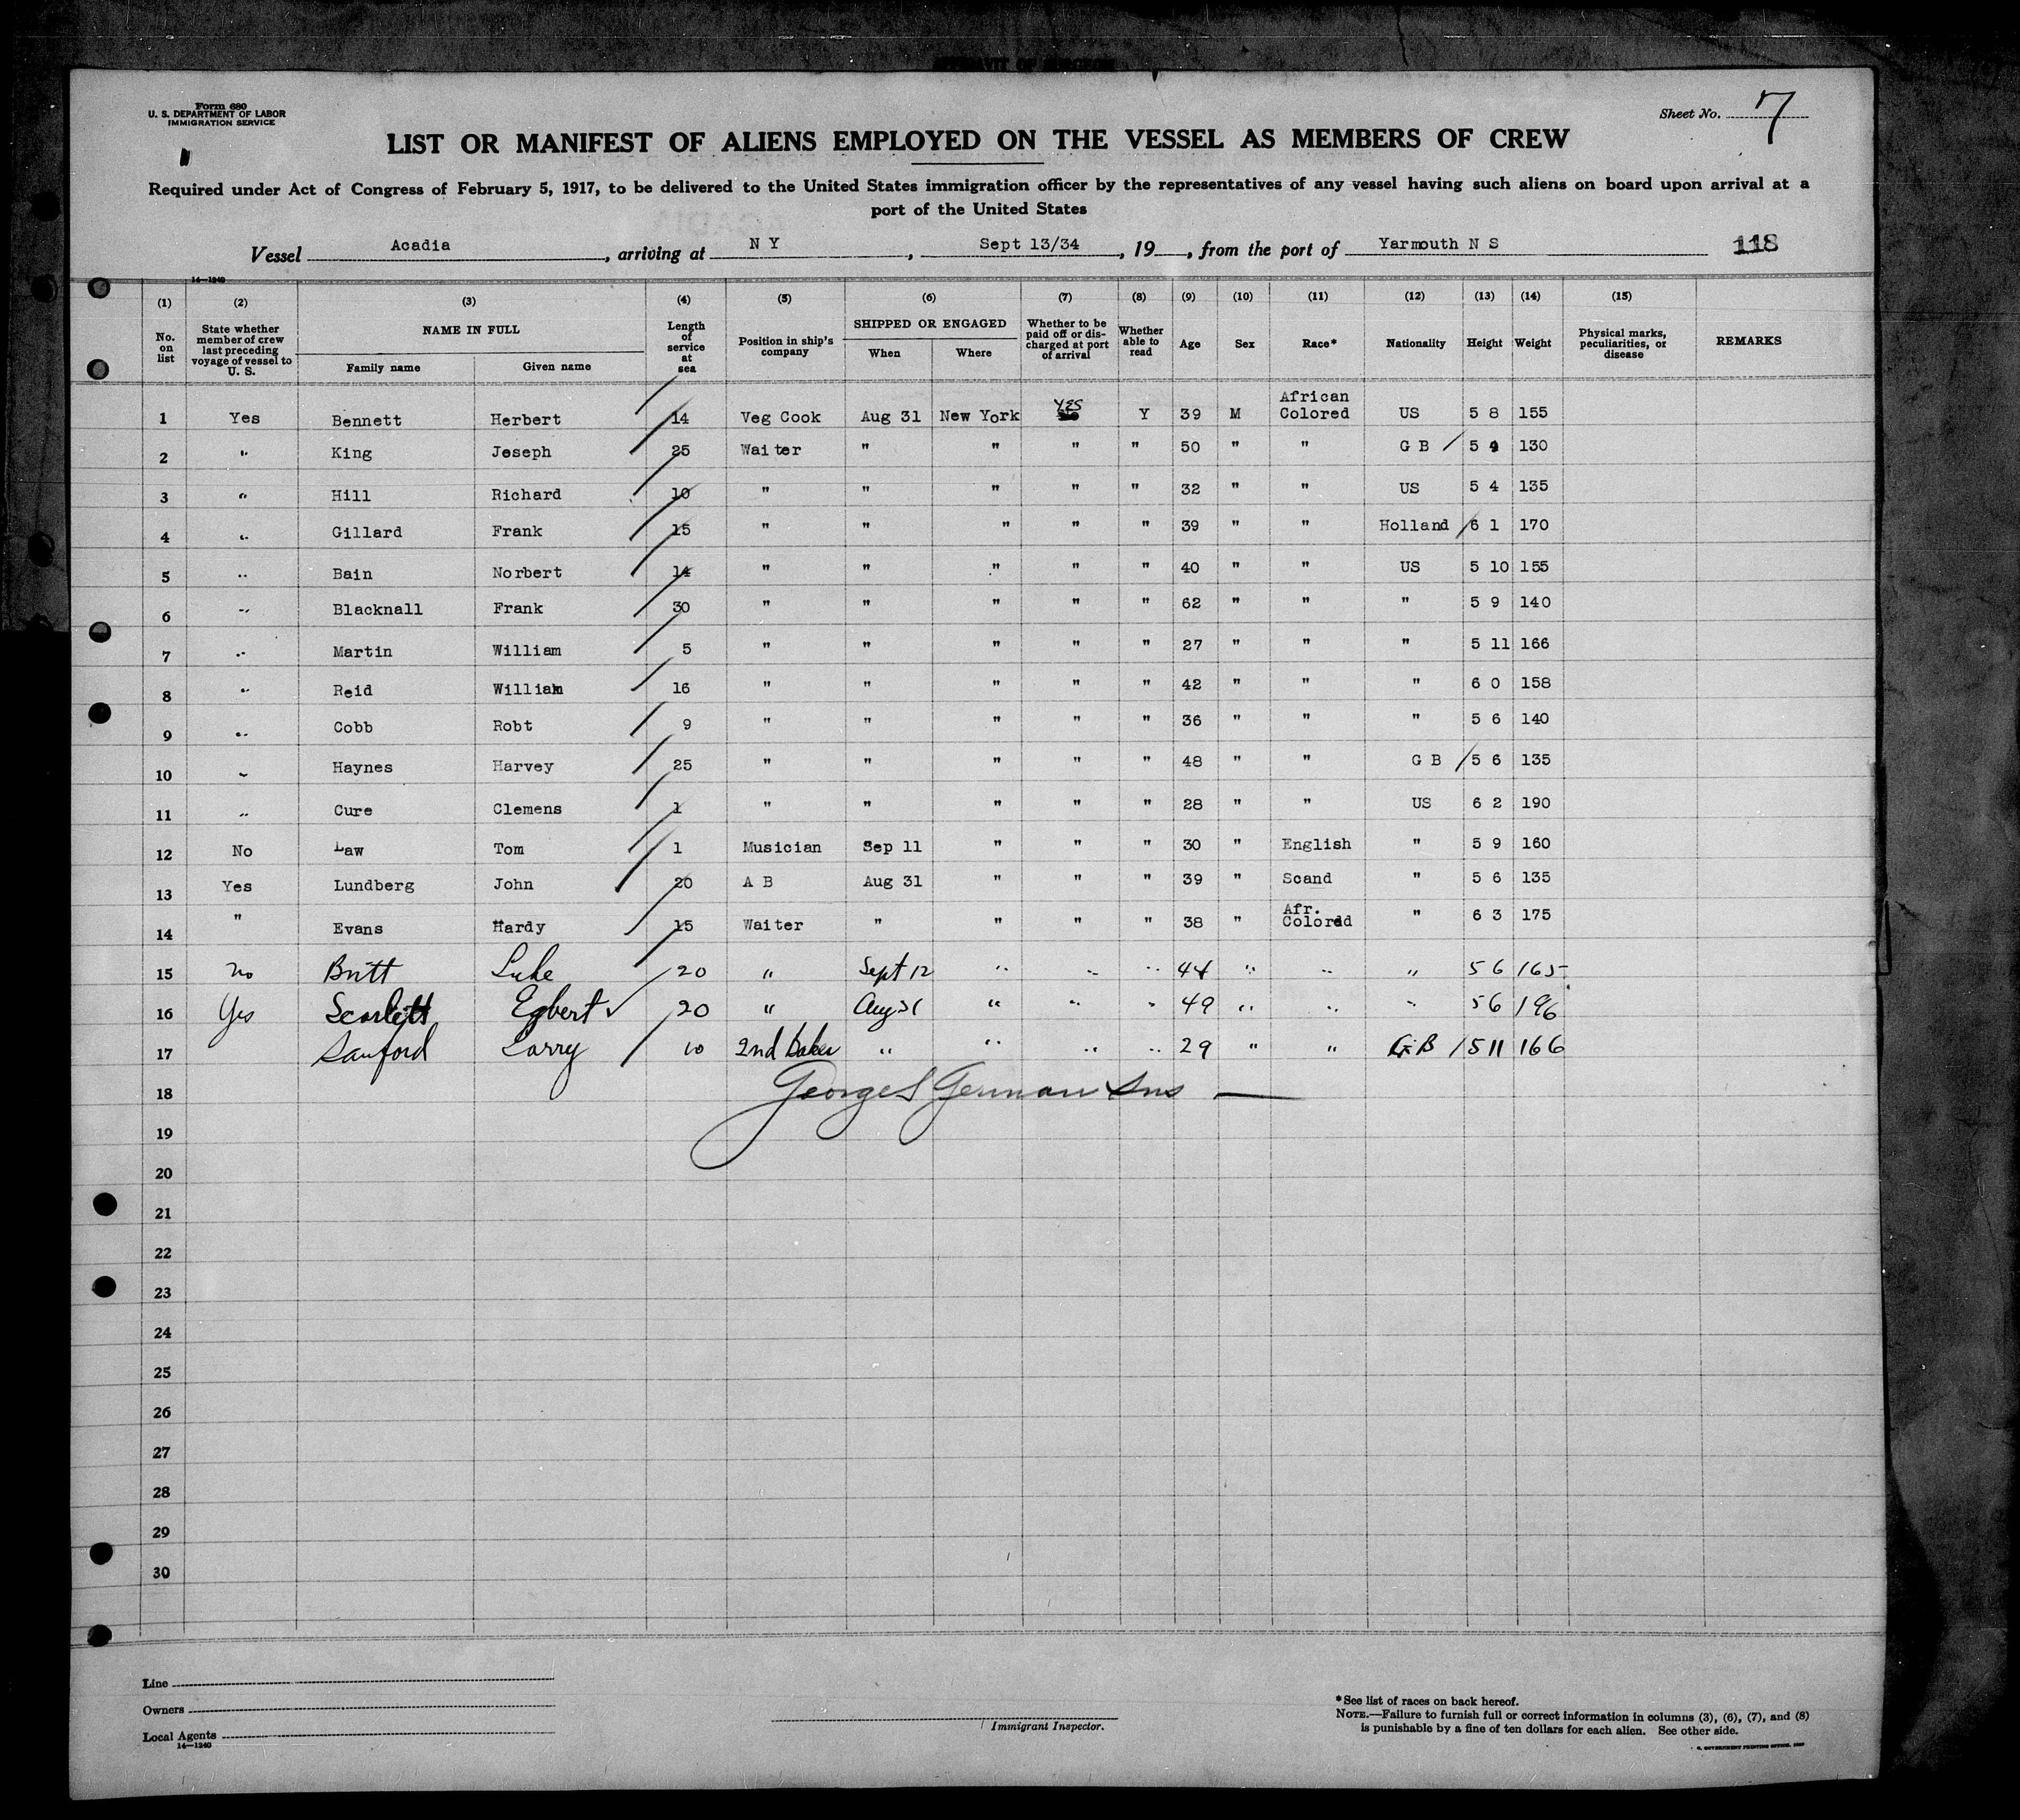 Form 680
U. S. DEPARTMENT OF LABOR
IMMIGRATION SERVICE
Sheet No. 7
LIST OR MANIFEST OF ALIENS EMPLOYED ON THE VESSEL AS MEMBERS OF CREW
Required under Act of Congress of February 5, 1917, to be delivered to the United States immigration officer by the representatives of any vessel having such aliens on board upon arrival at a
port of the United States
Vessel Acadia, arriving at N Y, Sept 13/34, 19__, from the port of Yarmouth N S 118
14—1240
(1) (2) (3) (4) (5) (6) (7) (8) (9) (10) (11) (12) (13) (14) (15)
No. on list
State whether member of crew last preceding voyage of vessel to U. S.
NAME IN FULL
Family name Given name
Length of service at sea
Position in ship's company
SHIPPED OR ENGAGED
When Where
Whether to be paid off or discharged at port of arrival
Whether able to read
Age Sex Race* Nationality Height Weight
Physical marks, peculiarities, or disease
REMARKS
1 Yes Bennett Herbert 14 Veg Cook Aug 31 New York YES Y 39 M African Colored US 5 8 155
2 " King Joseph 25 Waiter " " " " 50 " " G B 5 4 130
3 " Hill Richard 10 " " " " " 32 " " US 5 4 135
4 " Gillard Frank 15 " " " " " 39 " " Holland 6 1 170
5 " Bain Norbert 14 " " " " " 40 " " US 5 10 155
6 " Blacknall Frank 30 " " " " " 62 " " " 5 9 140
7 " Martin William 5 " " " " " 27 " " " 5 11 166
8 " Reid William 16 " " " " " 42 " " " 6 0 158
9 " Cobb Robt 9 " " " " " 36 " " " 5 6 140
10 " Haynes Harvey 25 " " " " " 48 " " G B 5 6 135
11 " Cure Clemens 1 " " " " " 28 " " US 6 2 190
12 No Law Tom 1 Musician Sep 11 " " " 30 " English " 5 9 160
13 Yes Lundberg John 20 A B Aug 31 " " " 39 " Scand " 5 6 135
14 " Evans Hardy 15 Waiter " " " " 38 " Afr. Colored " 6 3 175
15 no Britt Luke 20 " Sept 12 " " " 44 " " " 5 6 165
16 Yes Scarlett Egbert 20 " Aug 31 " " " 49 " " " 5 6 196
17 Sanford Larry 10 2nd Baker " " " " 29 " " G B 5 11 166
18 George S German
19
20
21
22
23
24
25
26
27
28
29
30
Line
Owners
Local Agents
14—1240
Immigrant Inspector.
*See list of races on back hereof.
NOTE.—Failure to furnish full or correct information in columns (3), (6), (7), and (8)
is punishable by a fine of ten dollars for each alien. See other side.